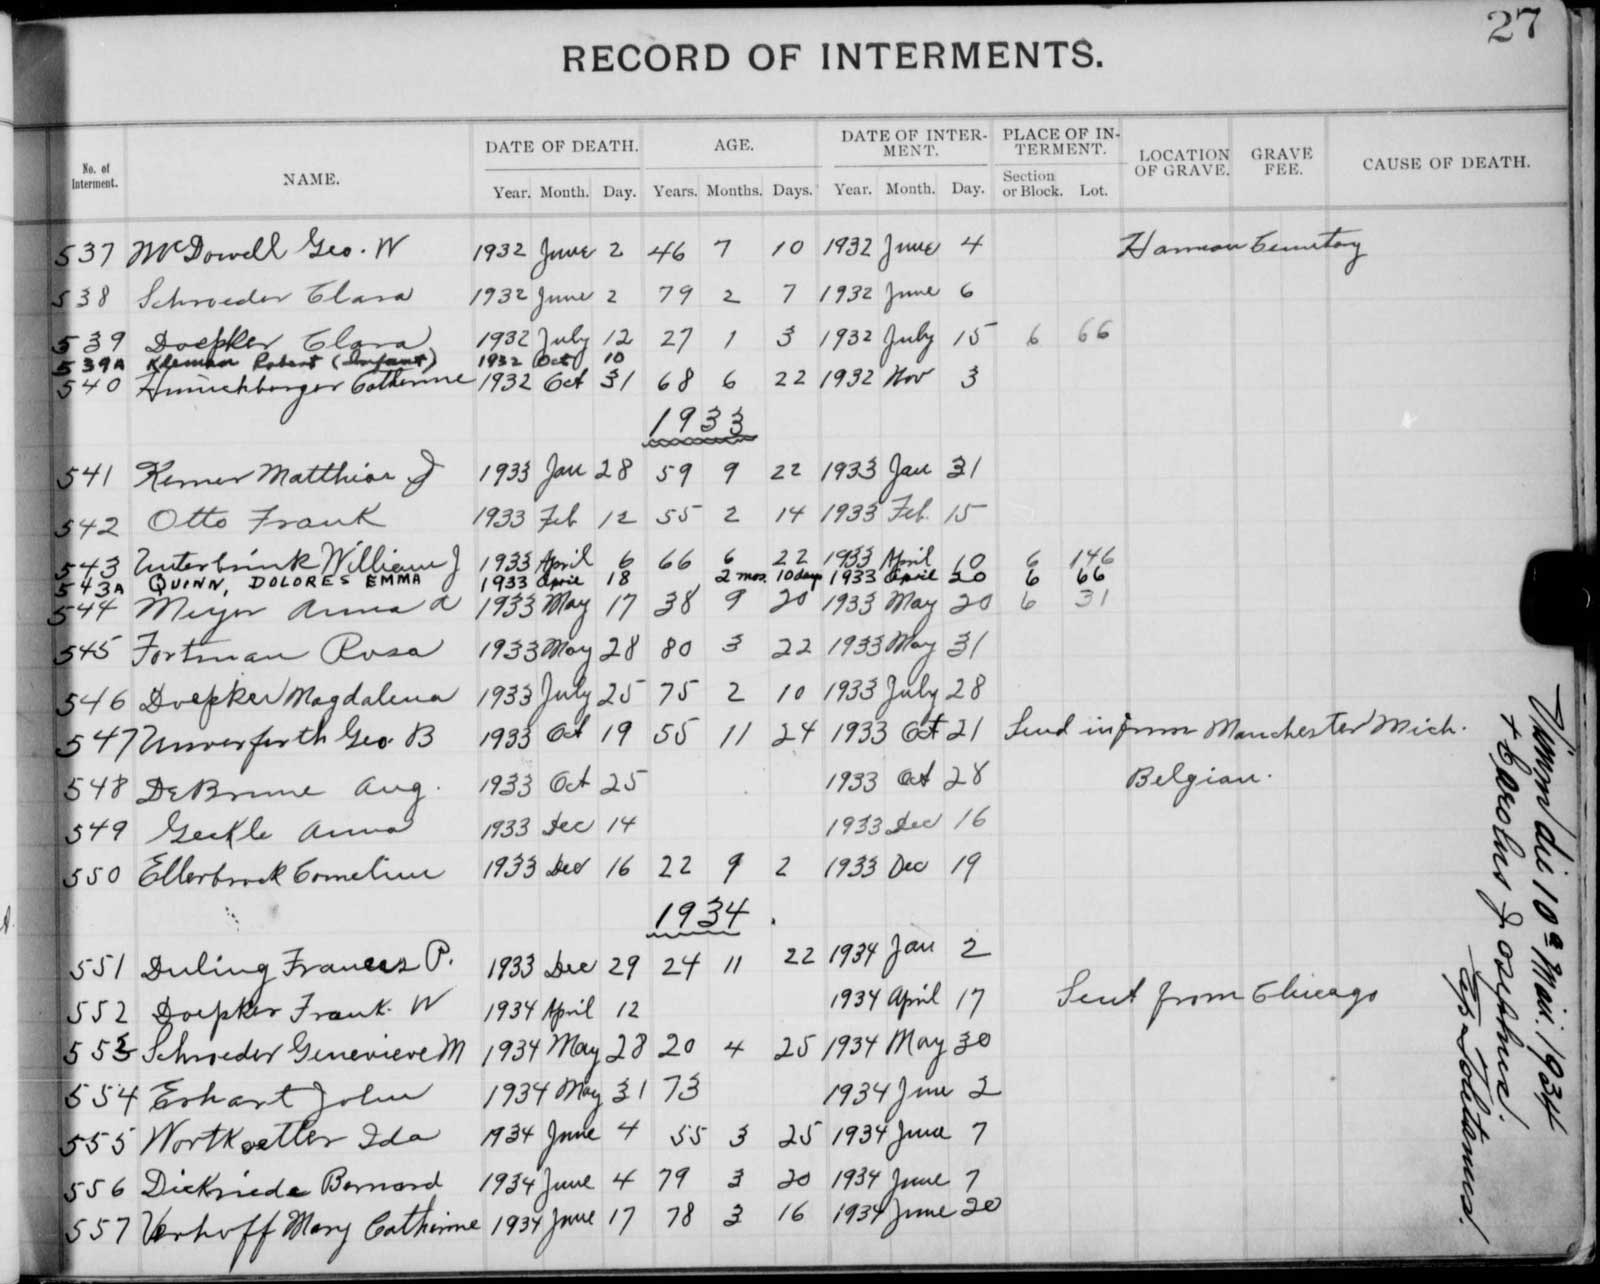 27
RECORD OF INTERMENTS.
No. of Interment. NAME. DATE OF DEATH. AGE. DATE OF INTERMENT. PLACE OF INTERMENT. LOCATION OF GRAVE. GRAVE FEE. CAUSE OF DEATH.
Year. Month. Day. Years. Months. Days. Year. Month. Day. Section or Block. Lot.
537 McDowell Geo. W 1932 June 2 46 7 10 1932 June 4 Harman Cemetery
538 Schroeder Clara 1932 June 2 79 2 7 1932 June 6
539 Doepker Clara 1932 July 12 27 1 3 1932 July 15 6 66
539A Kleman Robert (Infant) 1932 Oct 10
540 Catherine 1932 Oct 31 68 6 22 1932 Nov 3
1933
541 Kerner Matthias J 1933 Jan 28 59 9 22 1933 Jan 31
542 Otto Frank 1933 Feb 12 55 2 14 1933 Feb. 15
543 Unterbrink William J 1933 April 6 66 6 22 1933 April 10 6 146
543A QUINN, DOLORES EMMA 1933 April 18 2 mos. 10 days 1933 April 20 6 66
544 Meyer Anna a 1933 May 17 38 9 20 1933 May 20 6 31
545 Fortman Rosa 1933 May 28 80 3 22 1933 May 31
546 Doepker Magdalena 1933 July 25 75 2 10 1933 July 28
547 Unverferth Geo B 1933 Oct 19 55 11 24 1933 Oct 21 Send in from Manchester Mich.
548 DeBrune Aug. 1933 Oct 25 1933 Oct 28 Belgian.
549 Geckle Anna 1933 Dec 14 1933 Dec 16
550 Ellerbrock Cornelius 1933 Dec 16 22 9 2 1933 Dec 19
1934
551 Duling Frances P. 1933 Dec 29 24 11 22 1934 Jan 2
552 Doepker Frank W 1934 April 12 1934 April 17 Sent from Chicago
553 Schroeder Genevieve M 1934 May 28 20 4 25 1934 May 30
554 Erhart John 1934 May 31 73 1934 June 2
555 Wortkoetter Ida 1934 June 4 55 3 25 1934 June 7
556 Dickriede Bernard 1934 June 4 79 3 20 1934 June 7
557 Verhoff Mary Catherine 1934 June 17 78 3 16 1934 June 20
die 10a Maii 1934
+ Carolus Josephus
Eps Toletanus.